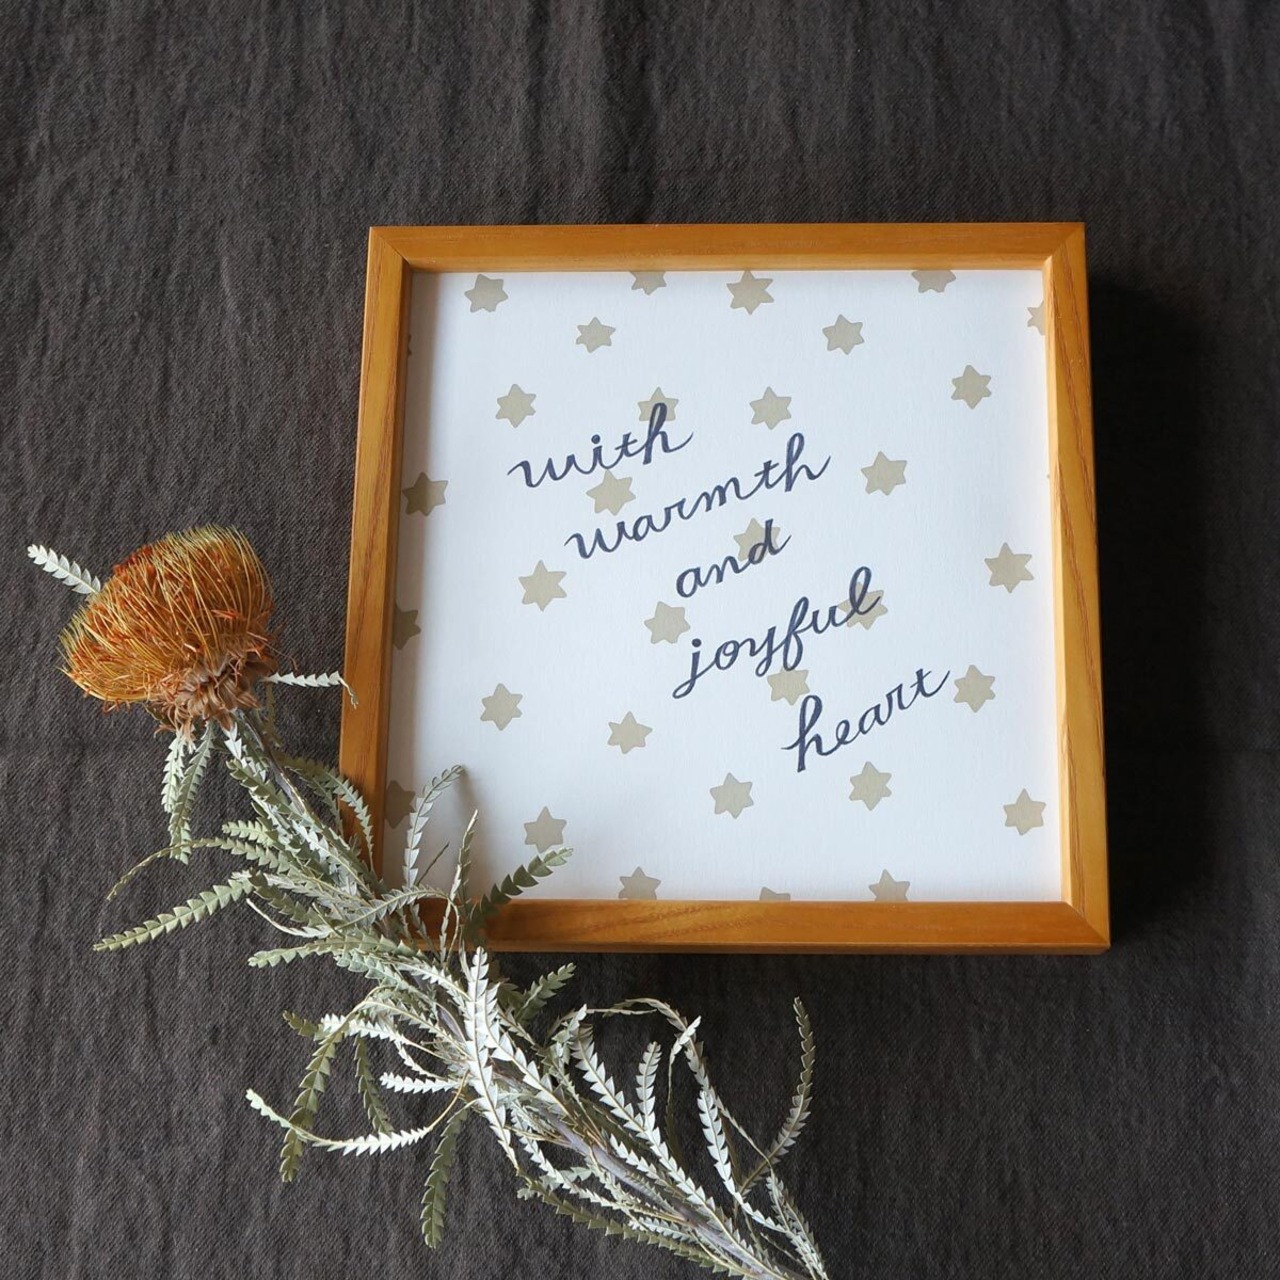 with
warmth
and
joyful
heart